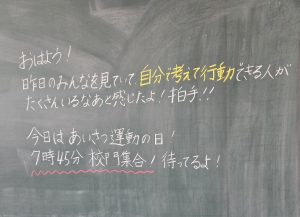 おはよう!
昨日のみんなを見ていて、自分で考えて行動できる人が
たくさんいるなあと感じたよ!拍手!!
今日はあいさつ運動の日!
7時45分 校門集合!待ってるよ!